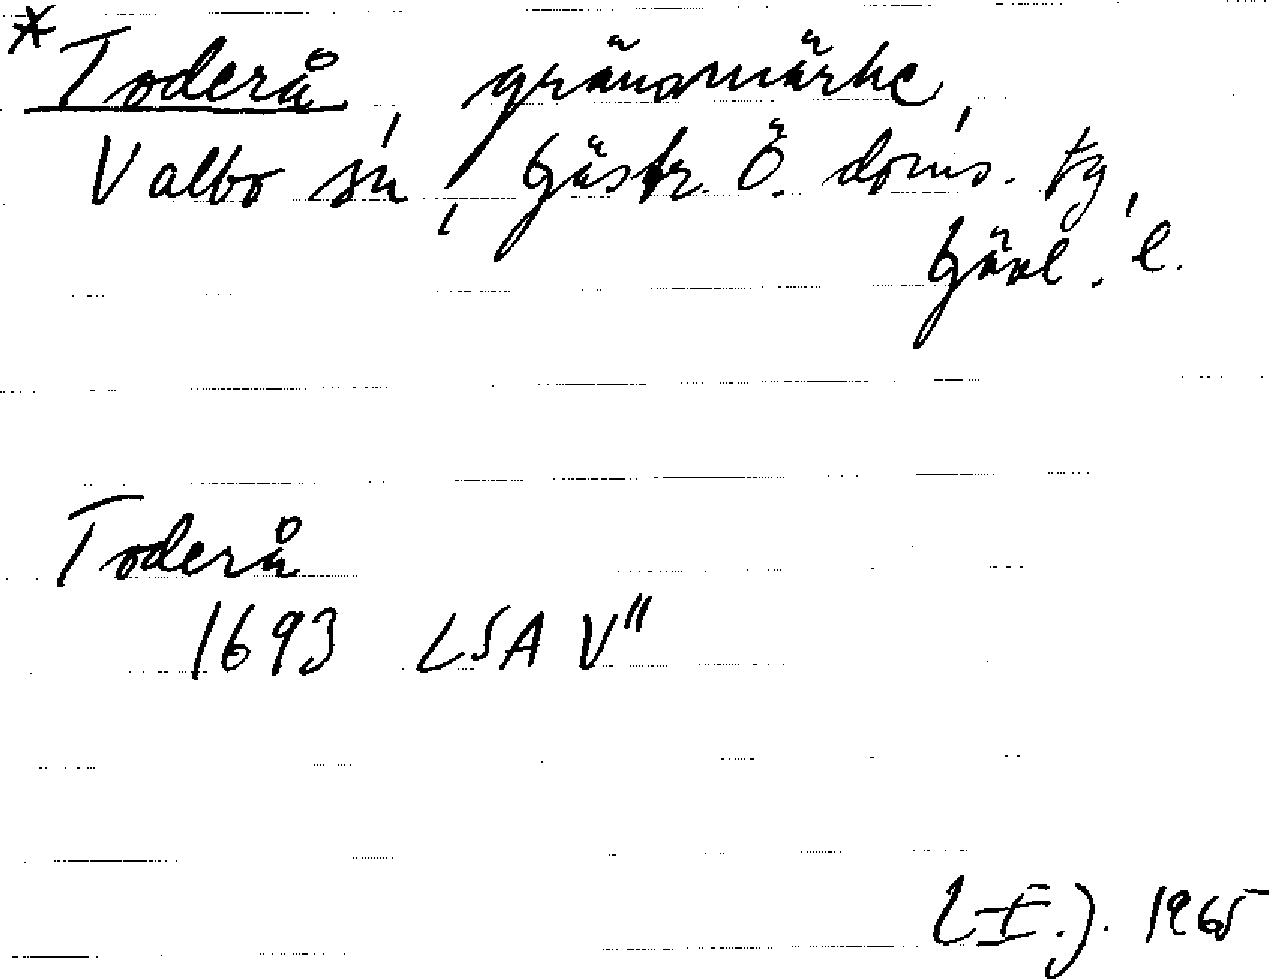 *Toderå, gränsmärke,
Valbo sn, Gästr. Ö. doms. tg,
Gävl. l.
Toderå
1693 LSA V"
1965